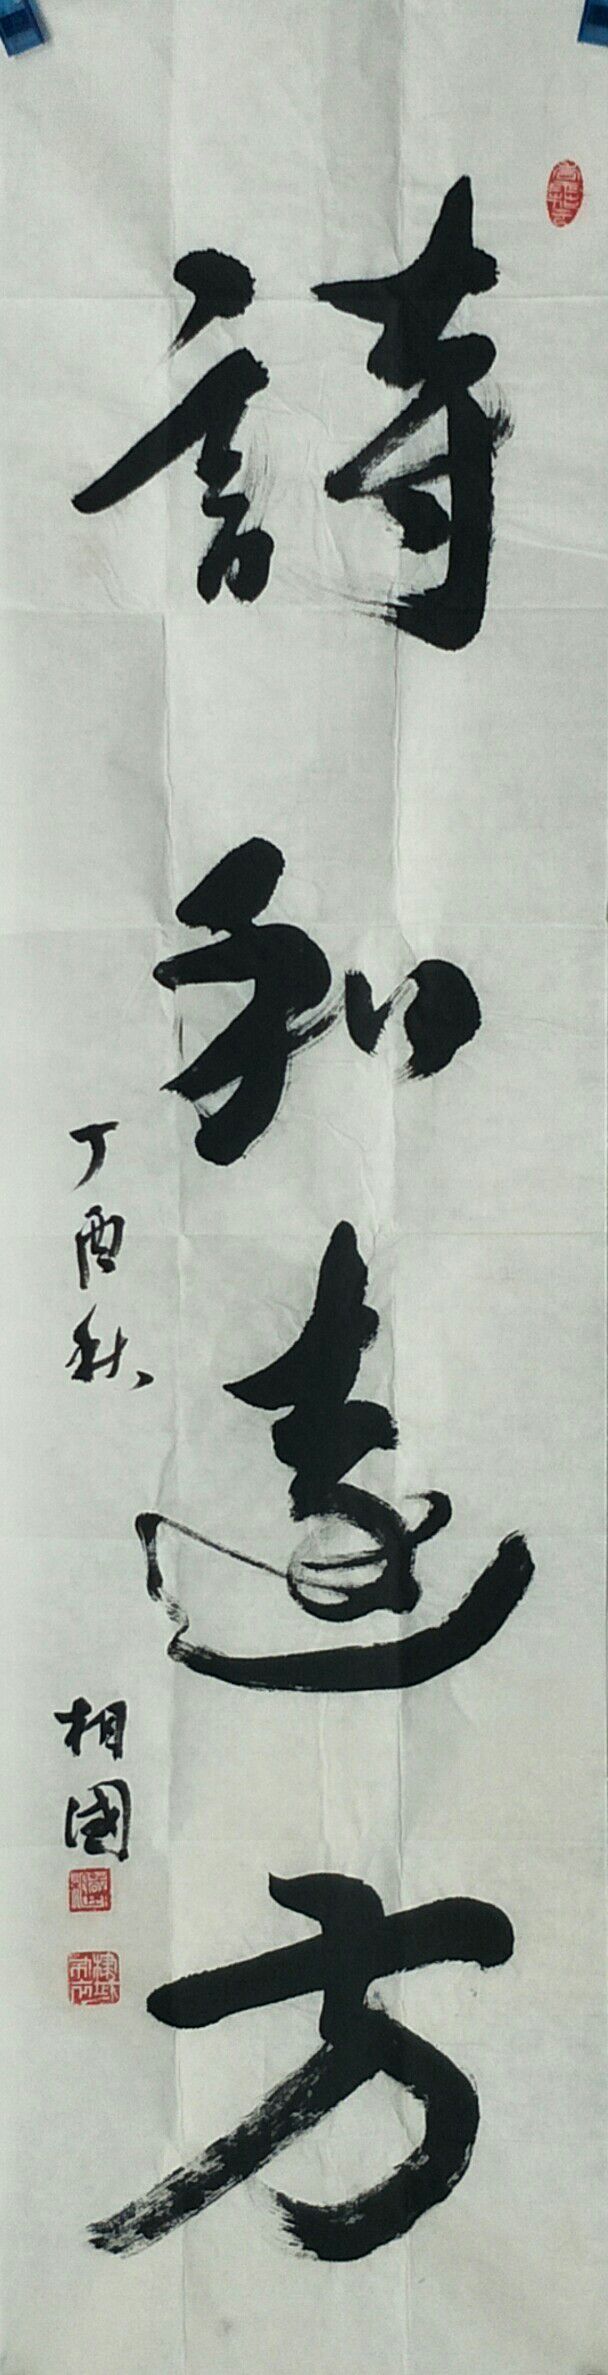 詩和遠方
丁酉秋
相國